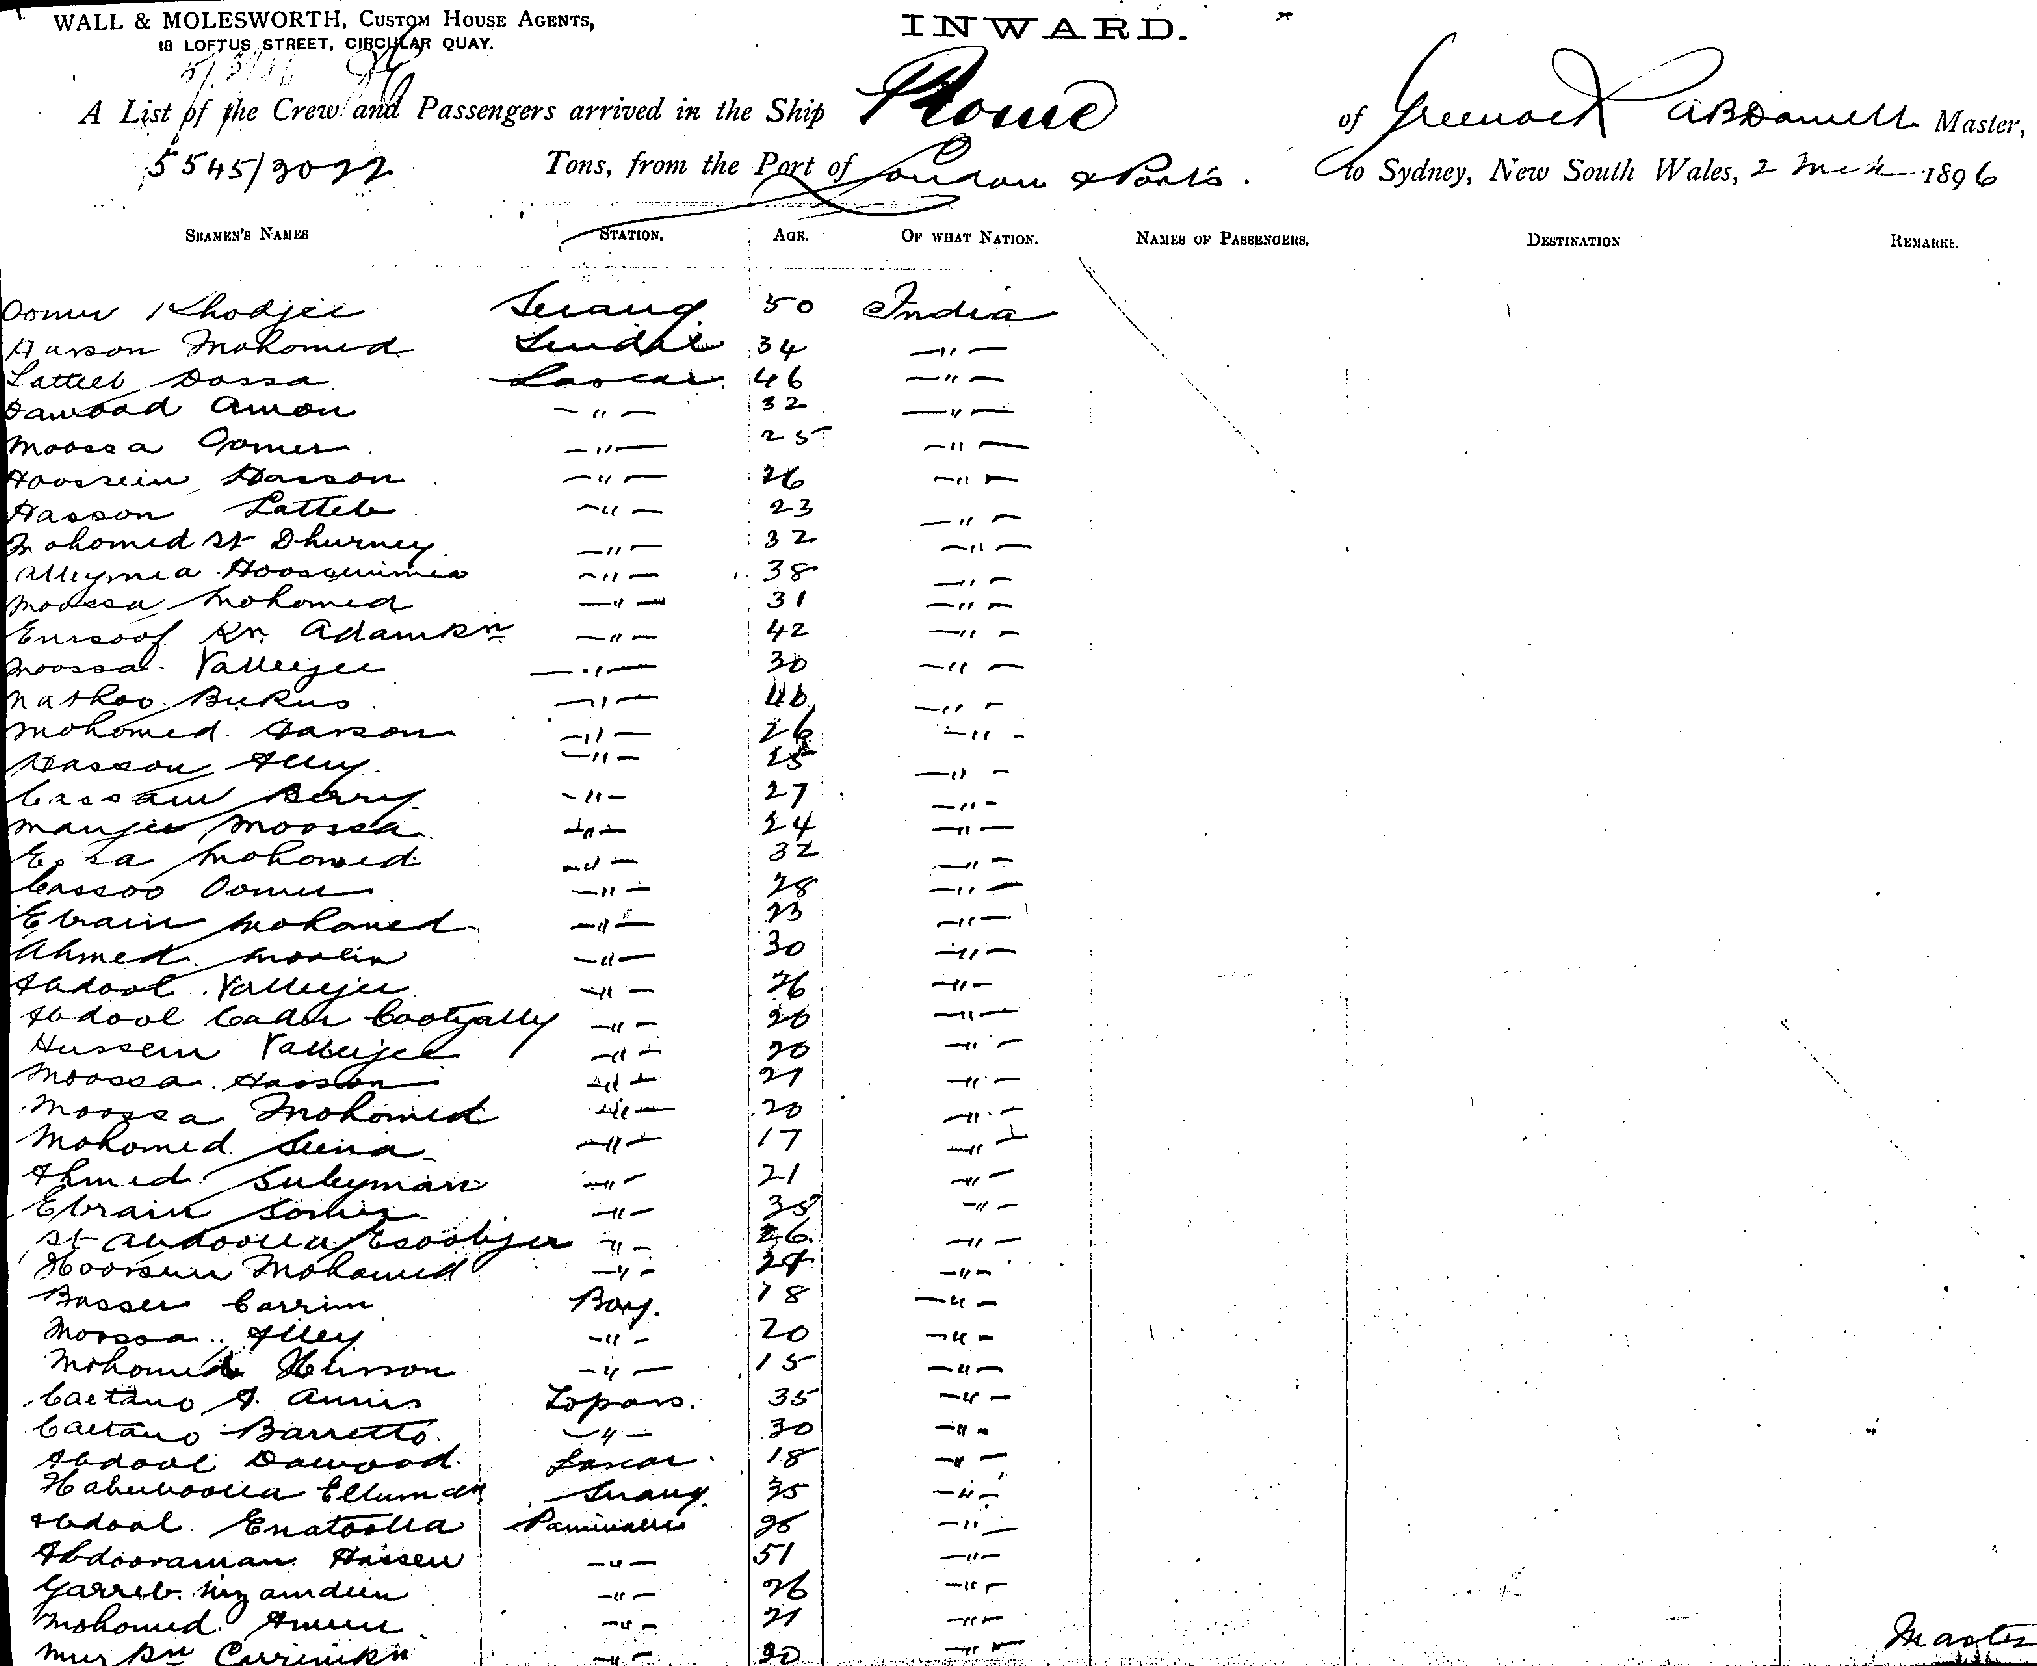 WALL & MOLESWORTH, CUSTOM HOUSE AGENTS,
18 LOFTUS STREET, CIRCULAR QUAY.
INWARD.
A List of the Crew and Passengers arrived in the Ship Rome of Greenock Master,
5545/3022 Tons, from the Port of London & Ports. to Sydney, New South Wales, 2 Mch 1896
SEAMEN'S NAMES STATION. AGE. OF WHAT NATION. NAMES OF PASSENGERS. DESTINATION REMARKS.
Oomer Khodjee Serang 50 India
Harson Mohomed 34 —"—
Latteeb Dossa Lascar 46 —"—
Dawood Amon —"— 32 —"—
Moossa Oomer —"— 25 —"—
Hoossein Hasson —"— 26 —"—
Hasson Latteb —"— 23 —"—
Mohomed St Dhurney —"— 32 —"—
Alleymia —"— 38 —"—
Moossa Mohomed —"— 31 —"—
Eusoof Kn. Adamkn —"— 42 —"—
Moossa Valleejee —"— 30 —"—
Nathoo Bukus —"— 40 —"—
Mohomed Harson —"— 26 —"—
Hasson Alley —"— 25 —"—
Cassaw Berry —"— 27 —"—
Manjee Moossa —"— 24 —"—
Essa Mohomed —"— 32 —"—
Cassoo Oomer —"— 28 —"—
Ebraim Mohomed —"— 23 —"—
Ahmed —"— 30 —"—
Abdool Valleejee —"— 26 —"—
Abdool Cader Cootyally —"— 20 —"—
Hussein Valleejee —"— 20 —"—
Moossa Hasson —"— 21 —"—
Moossa Mohomed —"— 20 —"—
Mohomed —"— 17 —"—
Ahmed Suleyman —"— 21 —"—
Ebraim —"— 38 —"—
St Abdoolla —"— 26 —"—
Hoossein Mohomed —"— 24 —"—
Carrim Boy. 18 —"—
Moossa Alley —"— 20 —"—
Mohomed Husson —"— 15 —"—
Caetano A. Topass. 35 —"—
Caetano Barretto —"— 30 —"—
Abdool Dawood Lascar 18 —"—
Habeboolla Serang. 35 —"—
Abdool Enatoolla 26 —"—
Abdooraman Hassen —"— 51 —"—
Garreeb Nizamdeen —"— 26 —"—
Mohomed Ameen —"— 21 —"—
Carrimkn —"— 20 —"—
Master